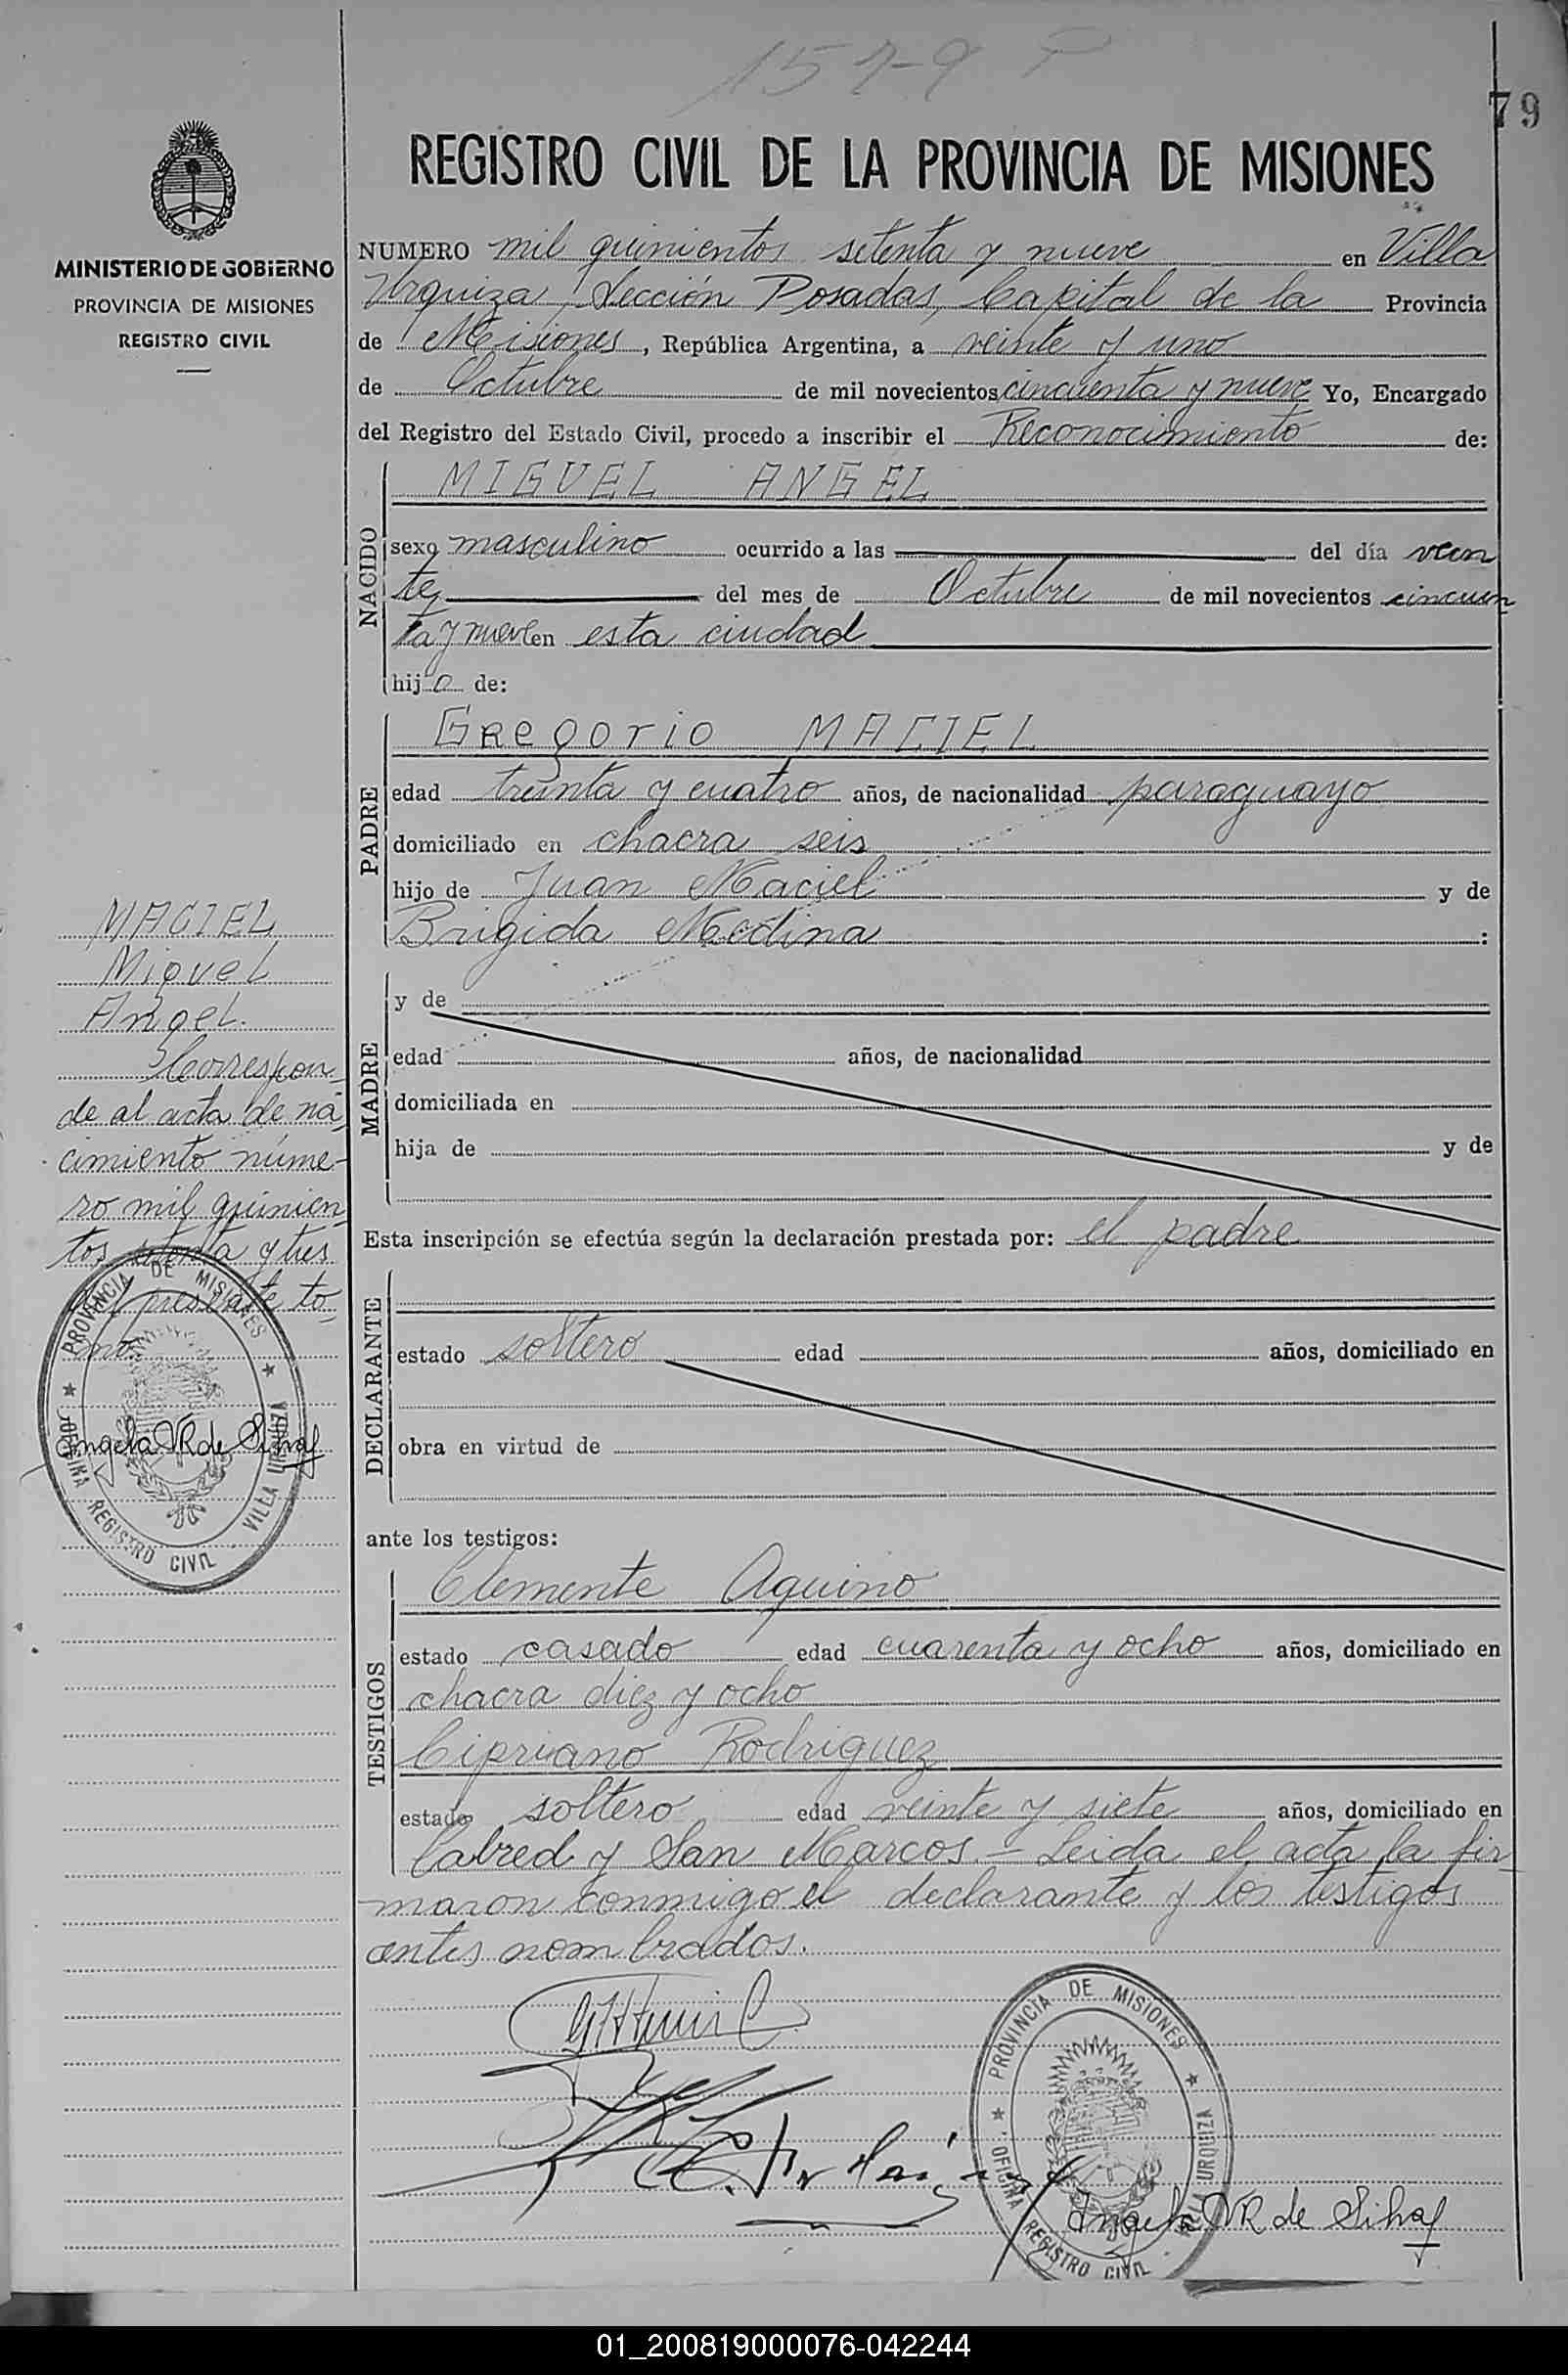 1579 P
79
REGISTRO CIVIL DE LA PROVINCIA DE MISIONES
MINISTERIO DE GOBIERNO
PROVINCIA DE MISIONES
REGISTRO CIVIL
NUMERO mil quinientos setenta y nueve en Villa
Urquiza, Sección Posadas, Capital de la Provincia
de Misiones, República Argentina, a veinte y uno
de Octubre de mil novecientos cincuenta y nueve Yo, Encargado
del Registro del Estado Civil, procedo a inscribir el Reconocimiento de:
NACIDO
MIGUEL ANGEL
sexo masculino ocurrido a las del día vein
te del mes de Octubre de mil novecientos cincuen
ta y nueve en esta ciudad
hijo de:
PADRE
Gregorio MACIEL
edad treinta y cuatro años, de nacionalidad paraguayo
domiciliado en chacra seis
hijo de Juan Maciel y de
Brigida Medina :
MADRE
y de
edad años, de nacionalidad
domiciliada en
hija de y de
Esta inscripción se efectúa según la declaración prestada por: el padre
DECLARANTE
estado soltero edad años, domiciliado en
obra en virtud de
ante los testigos:
TESTIGOS
Clemente Aquino
estado casado edad cuarenta y ocho años, domiciliado en
chacra diez y ocho
Cipriano Rodriguez
estado soltero edad veinte y siete años, domiciliado en
Cabred y San Marcos.- Leida el acta la fir
maron conmigo el declarante y los testigos
antes nombrados.
MACIEL
Miguel
Angel.
Correspon
de al acta de na
cimiento núme-
ro mil quinien
tos setenta y tres
del presente to
mo.
PROVINCIA DE MISIONES
OFICINA REGISTRO CIVIL VILLA URQUIZA
Angela VR de Silva
PROVINCIA DE MISIONES
OFICINA REGISTRO CIVIL VILLA URQUIZA
Angela VR de Silva
01_200819000076-042244